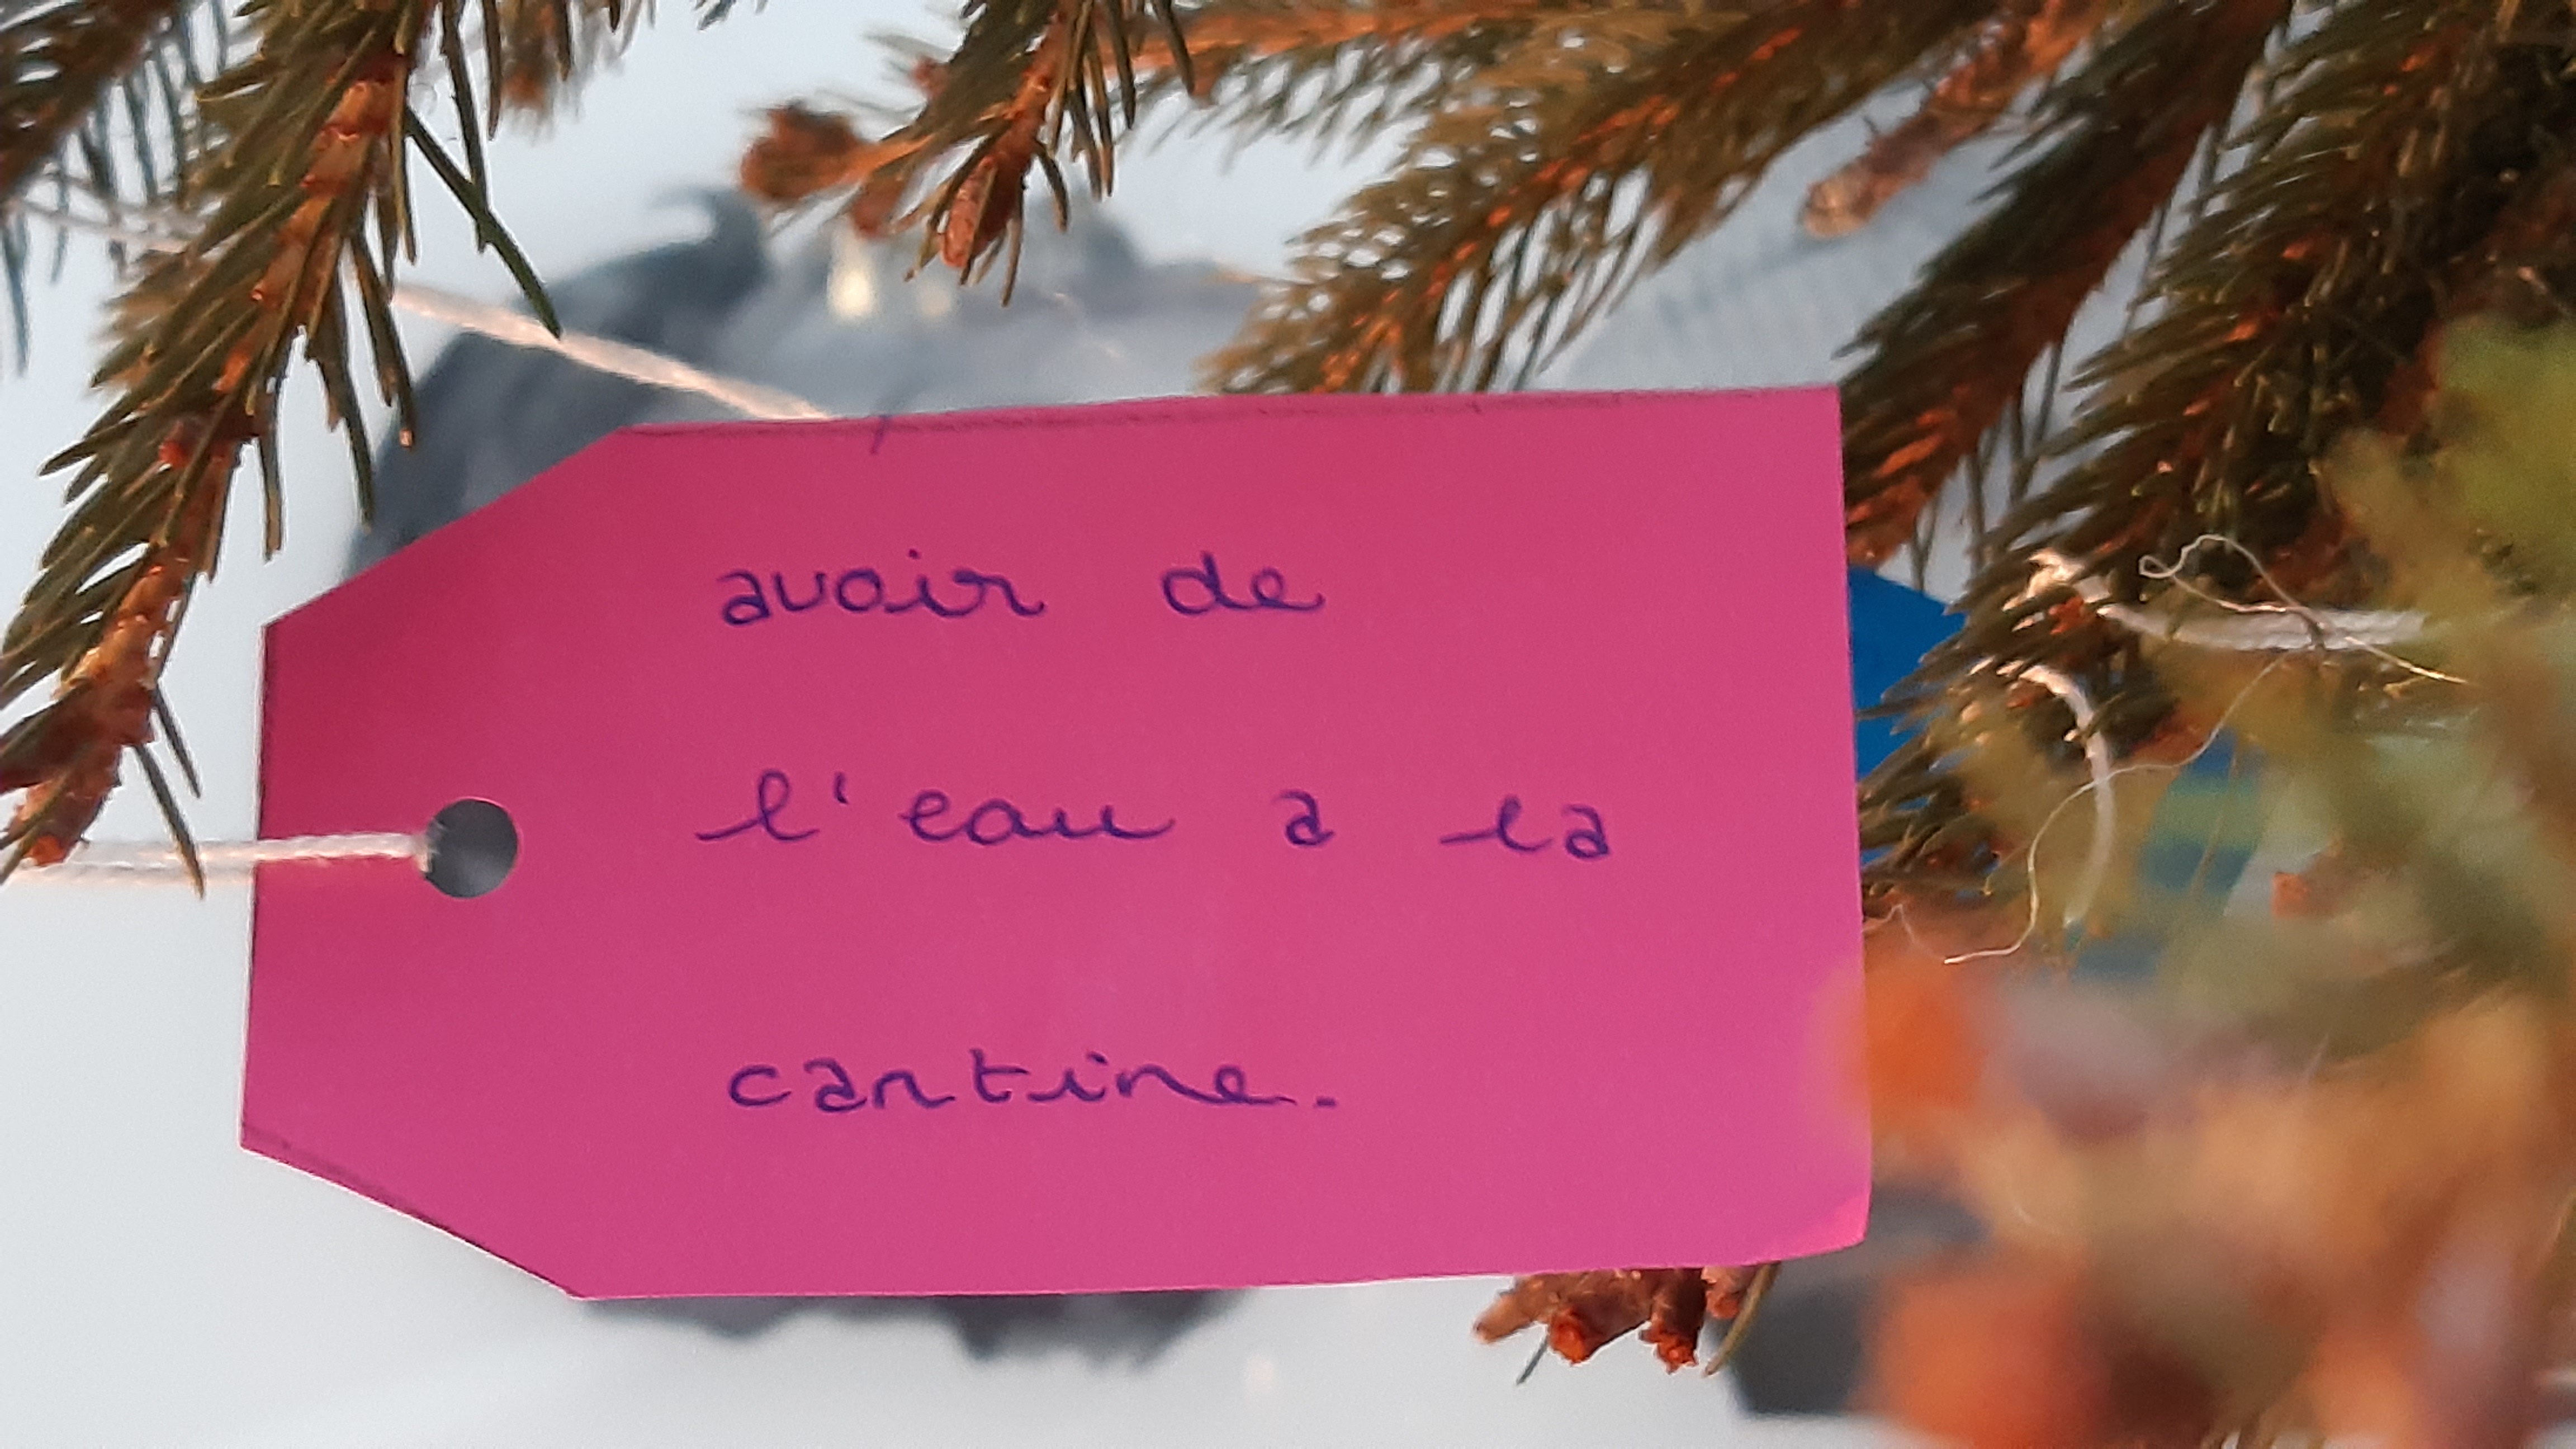 avoir de
l'eau a la
cantine.